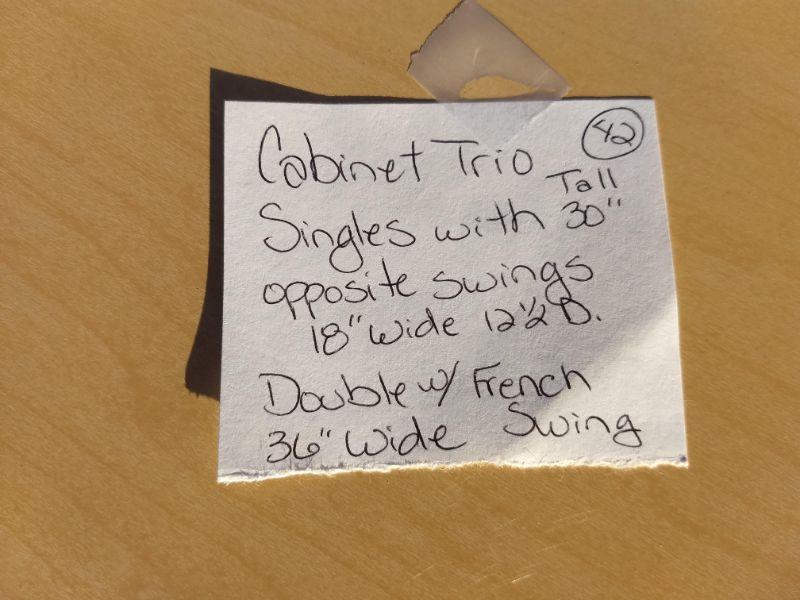 42
Cabinet Trio
Tall
Singles with 30"
opposite swings
18" Wide 12 1/2 D.
Double w/ French
36" Wide Swing